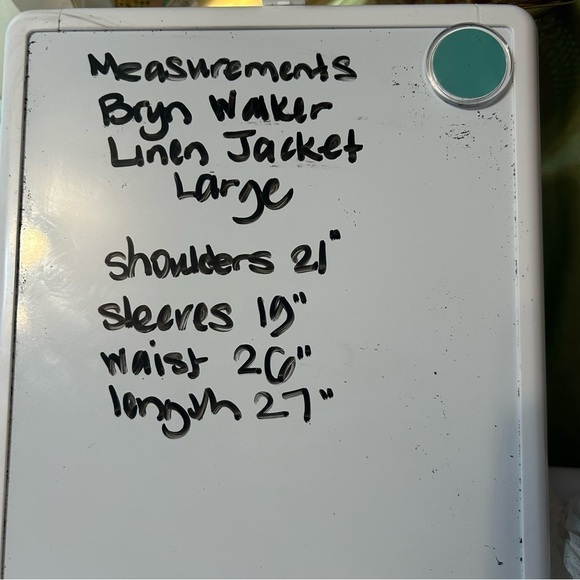 Measurements
Bryn Walker
Linen Jacket
Large
shoulders 21"
sleeves 19"
waist 26"
length 27"